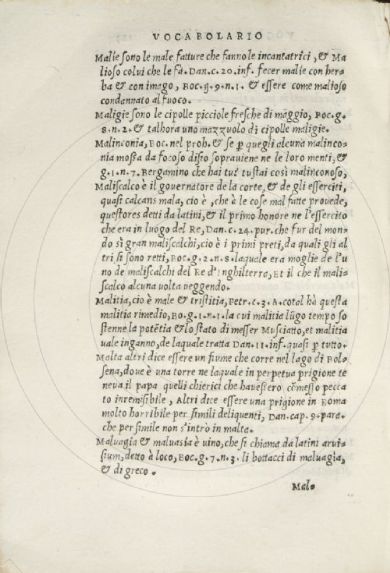 VOCABOLARIO
Malie sono le male fatture che fanno le incantatrici, & Ma
lioso colui che le fa. Dan. c. 20. inf. fecer malie con her
ba & con imago, Boc. g. 9. n. 1. & essere come malioso
condannato al fuoco.
Maligie sono le cipolle picciole fresche di maggio, Boc. g.
8. n. 2. & talhora uno mazzuolo di cipolle maligie.
Malinconia, Boc. nel proh. & se p quegli alcuna malinco=
nia mossa da focoso disio soprauiene ne le loro menti, &
g. 1. n. 7. Bergamino che hai tu? tu stai così malinconoso,
Maliscalco è il governatore de la corte, & de gli esserciti,
quasi calcans mala, cio è, che à le cose mal fatte provede,
questores detti da latini, & il primo honore ne l'essercito
che era in luogo del Re, Dan. c. 24. pur. che fur del mon=
do sì gran maliscalchi, cio è i primi preti, da quali gli al
tri si sono retti, Boc. g. 2. n. 8. laquale era moglie de l'u
no de maliscalchi del Re d'Inghilterra, Et il che il malis
scalco alcuna uolta veggendo.
Malitia, cio è male & tristitia, Petr. c. 3. A cotal hà questa
malitia rimedio, Bo. g. 1. n. 1. la cui malitia lūgo tempo so
stenne la potētia & lo stato di messer Musciatto, et malitia
uale inganno, de laquale tratta Dan. 11. inf. quasi p tutto.
Malta altri dice essere un fiume che corre nel lago di Bols
sena, doue è una torre ne laquale in perpetua prigione te
neua il papa quelli chierici che havessero cōmesso pecca
to inremissibile, Altri dice essere una prigione in Roma
molto horribile per simili deliquenti, Dan. cap. 9. para.
che per simile non s'intrò in malta.
Maluagia & maluasia è uino, che si chiama da latini arui=
sium, detto à loco, Boc. g. 7. n. 3. li bottacci di maluagia,
& di greco.
Malo